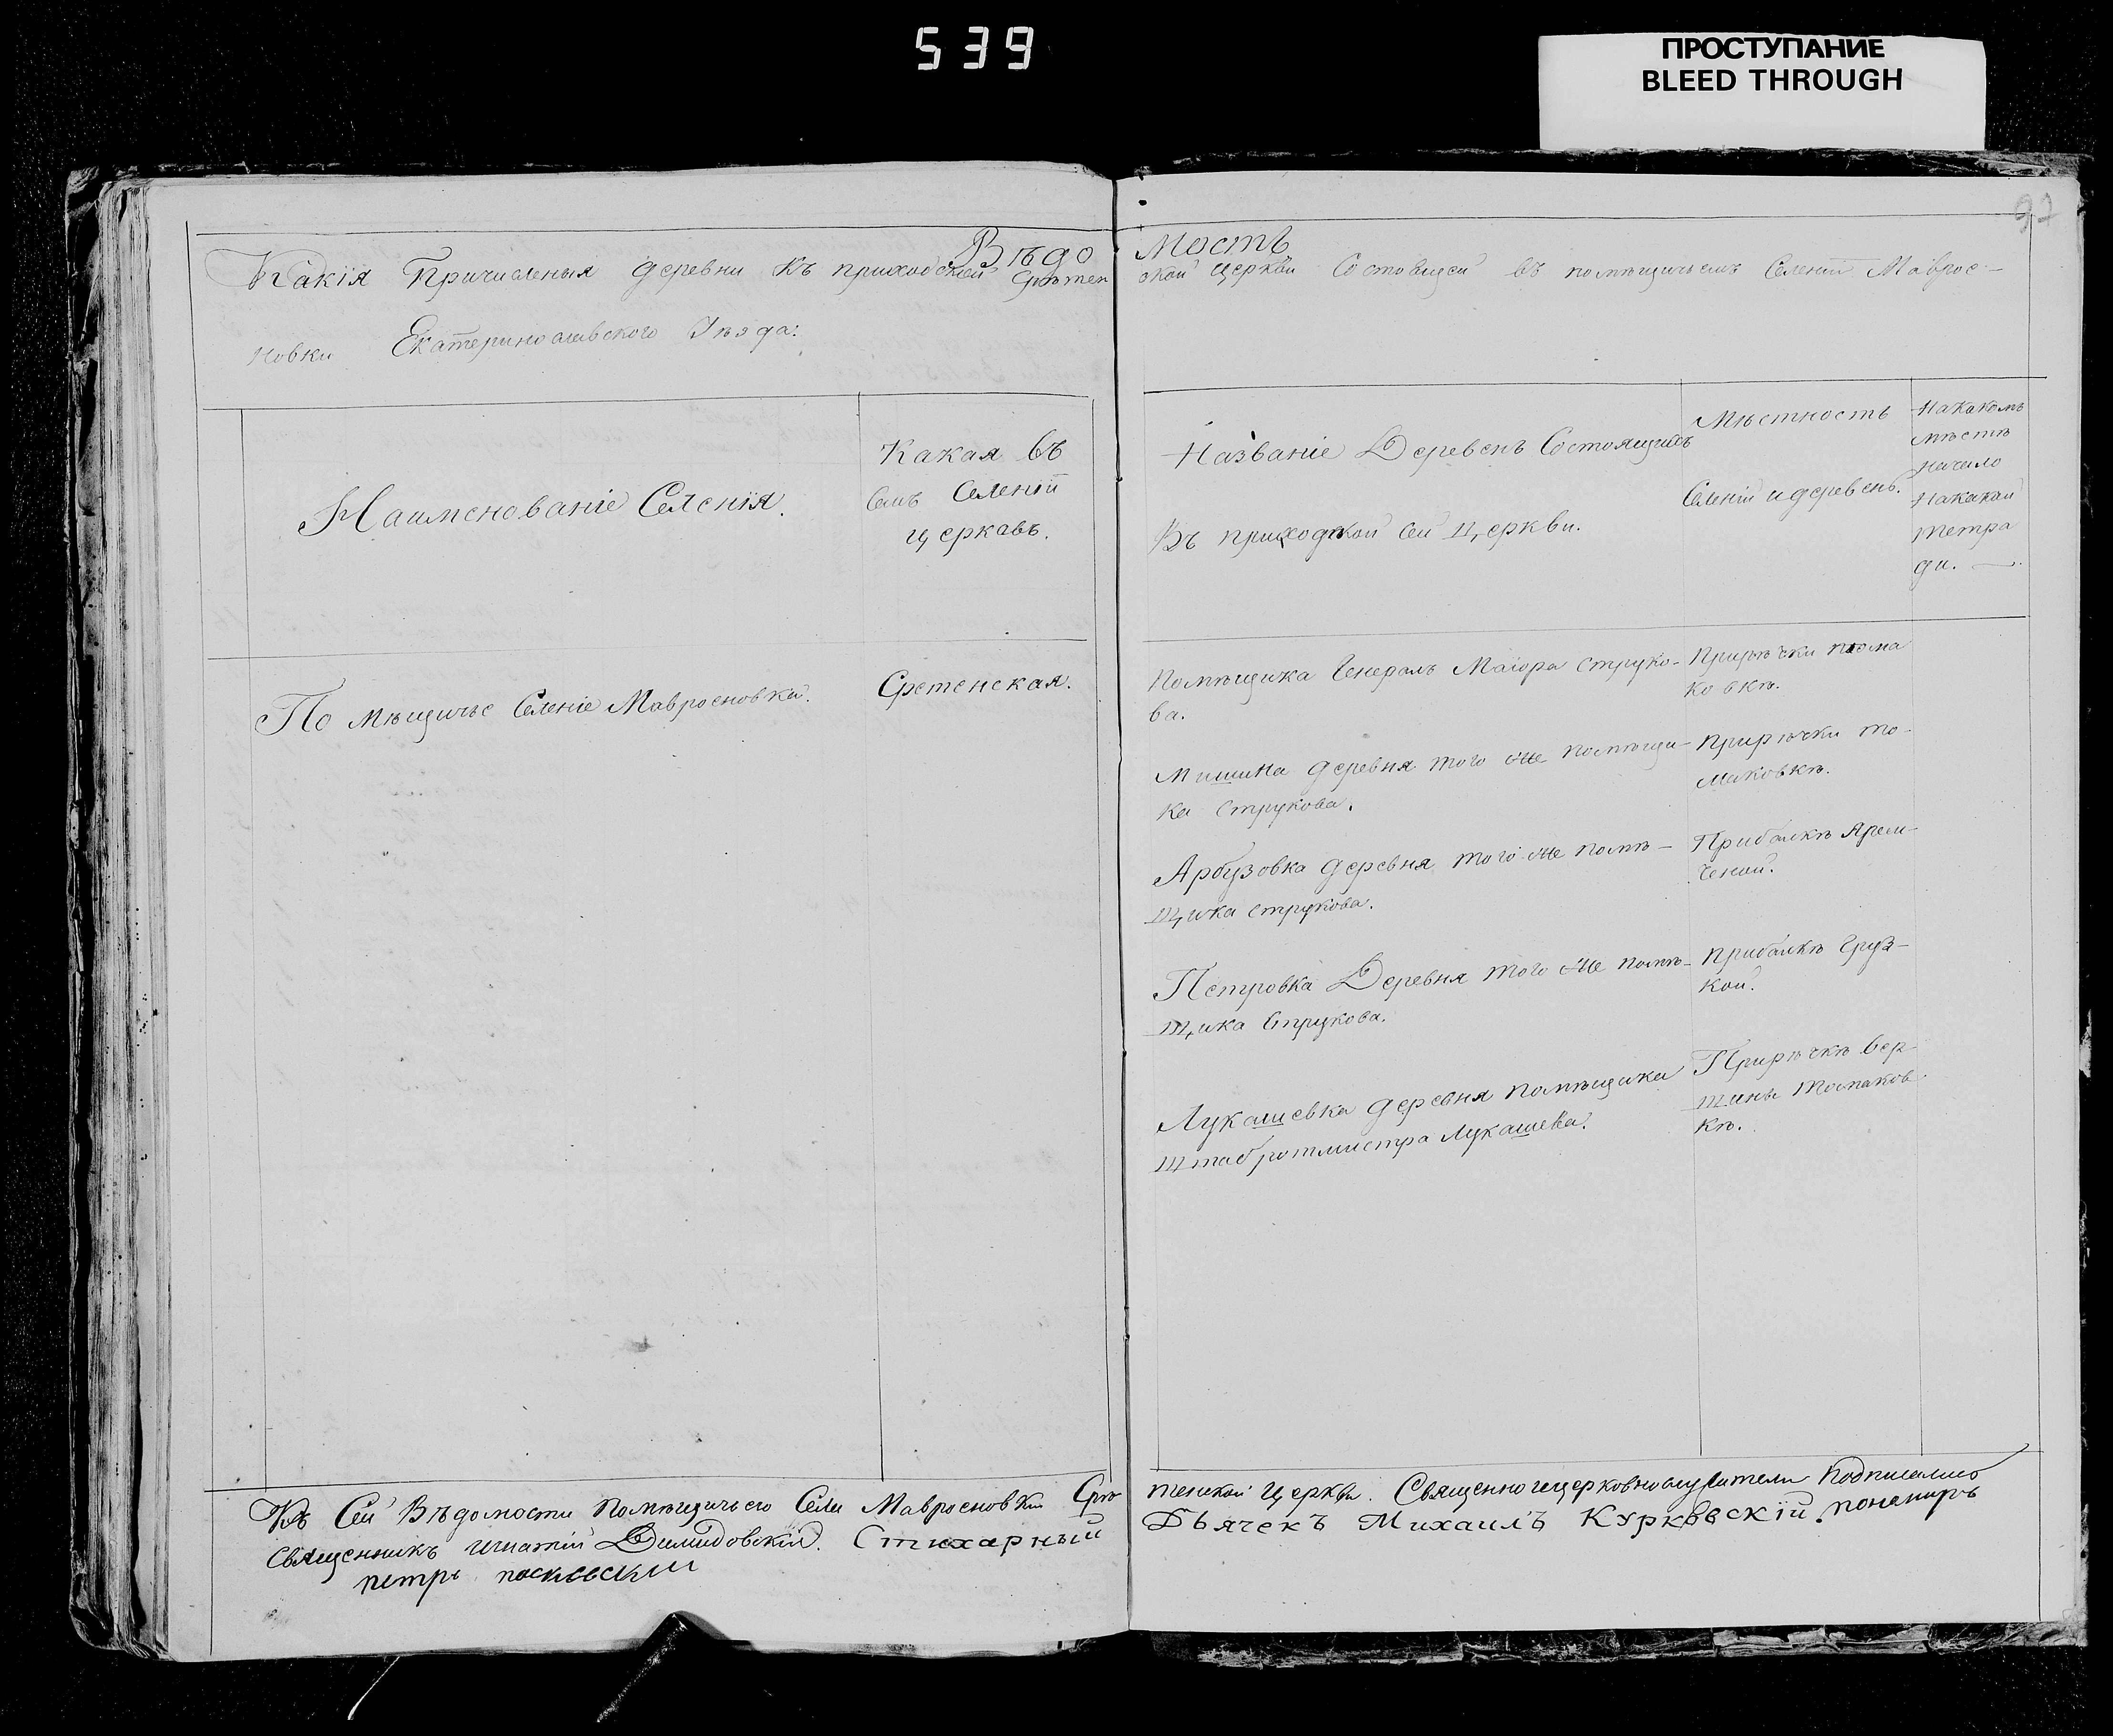 539
ПРОСТУПАНИЕ
BLEED THROUGH
97
Вѣдо мость
Какія Причисленыя деревни къ приходской Срѣтен ской церкви Состовщей въ помѣщичьемъ Селеніи Маврос-
новки Екатеринославского Уѣзда:
Наименованіе Селенія.
Какая въ
Семъ Селеніи
церковь.
Названіе Деревень Состоящихъ
Въ приходской Сей Церкви.
Мѣстность
Селеній и деревень.
Накакомъ
мѣстѣ
начало
Накакой
тетра
ди.
По мѣщичье Селеніе Мавросновка.
Сретенская.
Помѣщика Генералъ Маіора Струко-
ва.
Прирѣчки тома
ковкѣ.
Мишина деревня того же помѣщи-
ка Струкова.
Прирѣчки то-
маковкѣ.
Арбузовка деревня того же помѣ-
щика Струкова.
Прибалкѣ Ярем-
ченой.
Петровка Деревня того же помѣ-
щика Струкова.
Прибалкѣ Груз-
кой.
Лукашевка деревня помѣщика
Штабротмистра Лукашева.
Прирѣчкѣ вер-
шины Томаков
кѣ.
Къ Сей Вѣдомости Помѣщичьего Села Мавросновки Срѣ тенской Церкви. Священноицерковнослужители Подписались
Священникъ Игнатій Димидовскій. Стихарный Дьячекъ Михаилъ Курковскій. понамиръ
петръ